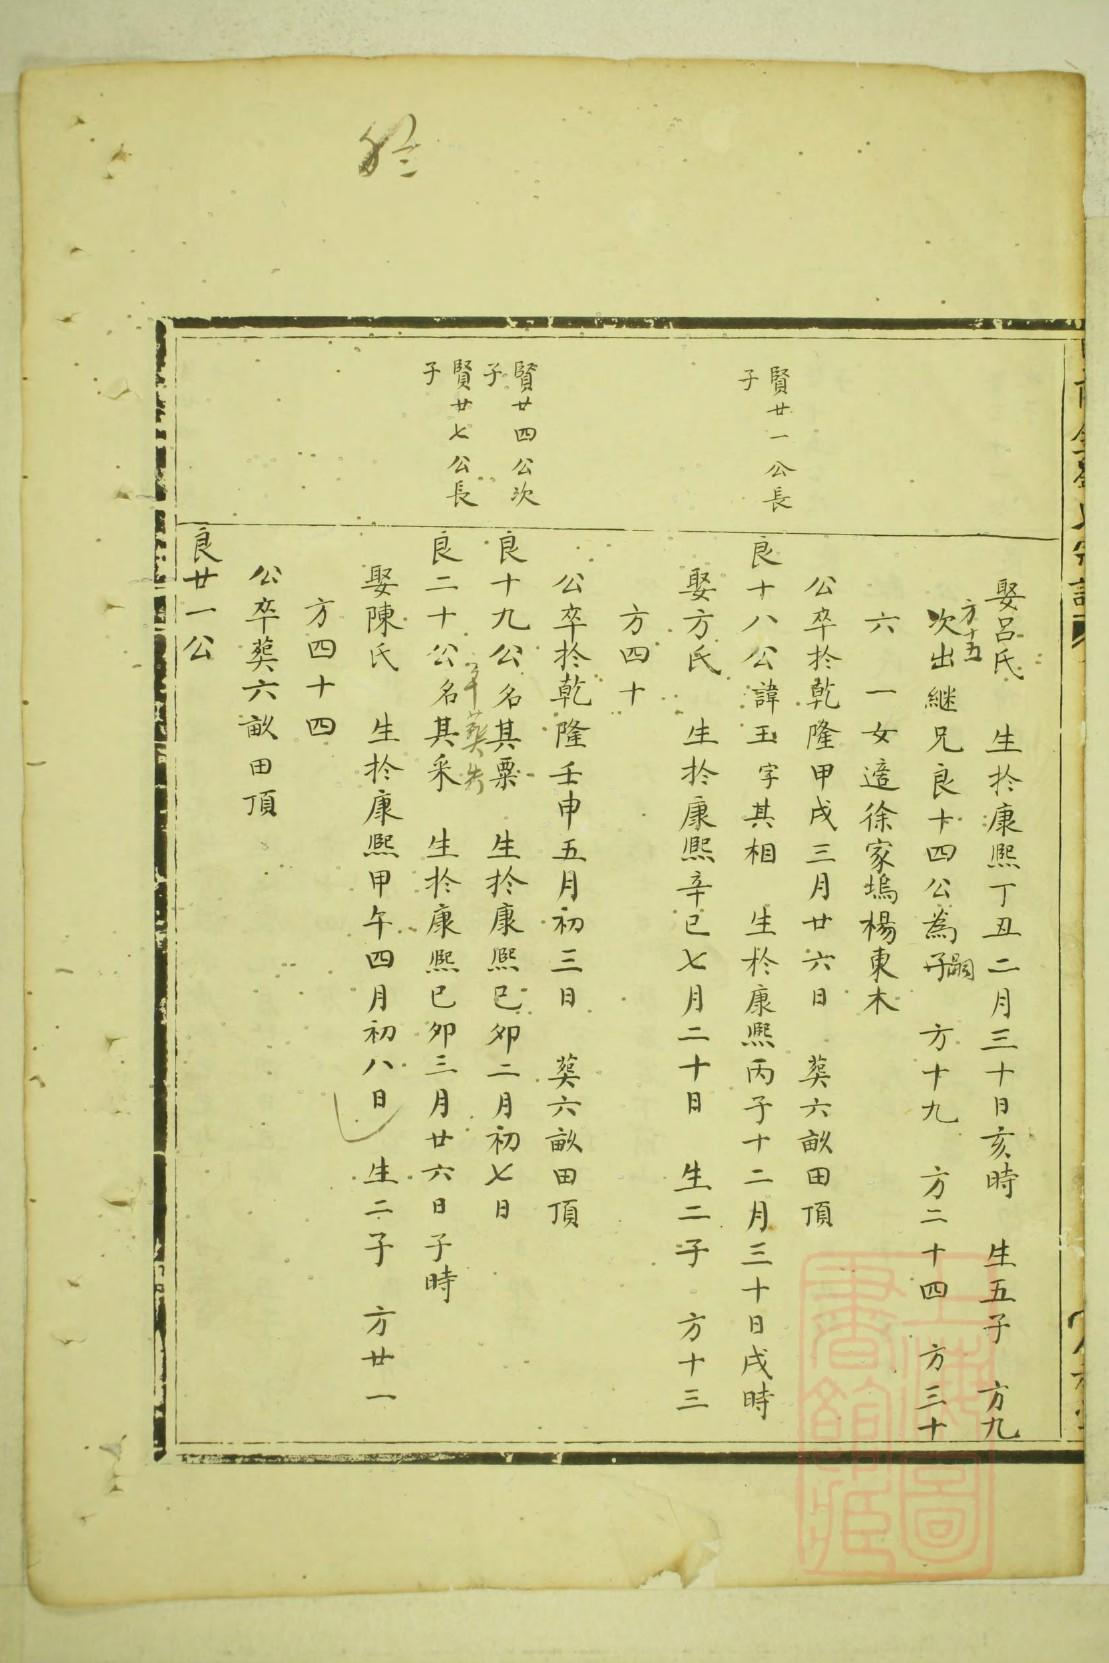 娶呂氏　生於康熙丁丑二月三十日亥時　生五子　方九
方十五
次出継兄良十四公為子嗣　方十九　方二十四　方三十
六　一女適徐家塢楊東木
公卒於乾隆甲戌三月廿六日　葬六畝田頂
賢廿一公長
子
良十八公諱玉字其相　生於康熙丙子十二月三十日戌時
娶方氏　生於康熙辛巳七月二十日　生二子　方十三
方四十
公卒於乾隆壬申五月初三日　葬六畝田頂
賢廿四公次
子
良十九公名其粟　生於康熙己卯二月初七日
卒葬失
賢廿七公長
子
良二十公名其采　生於康熙己卯三月廿六日子時
娶陳氏　生於康熙甲午四月初八日　生二子　方廿一
方四十四
公卒葬六畝田頂
良廿一公
上海圖
書館藏